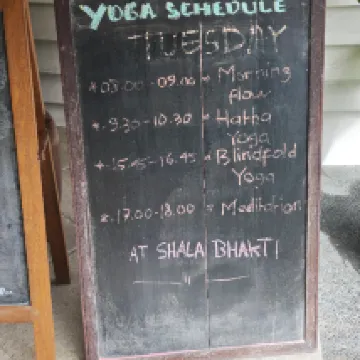 YOGA SCHEDULE
TUESDAY
*.08.00-09.00 * Morning
flow
*.9.30-10.30 * Hatha
Yoga
*.15.45-16.45 * Blindfold
Yoga
*.17.00-18.00 * Meditation
AT SHALA BHAKTI